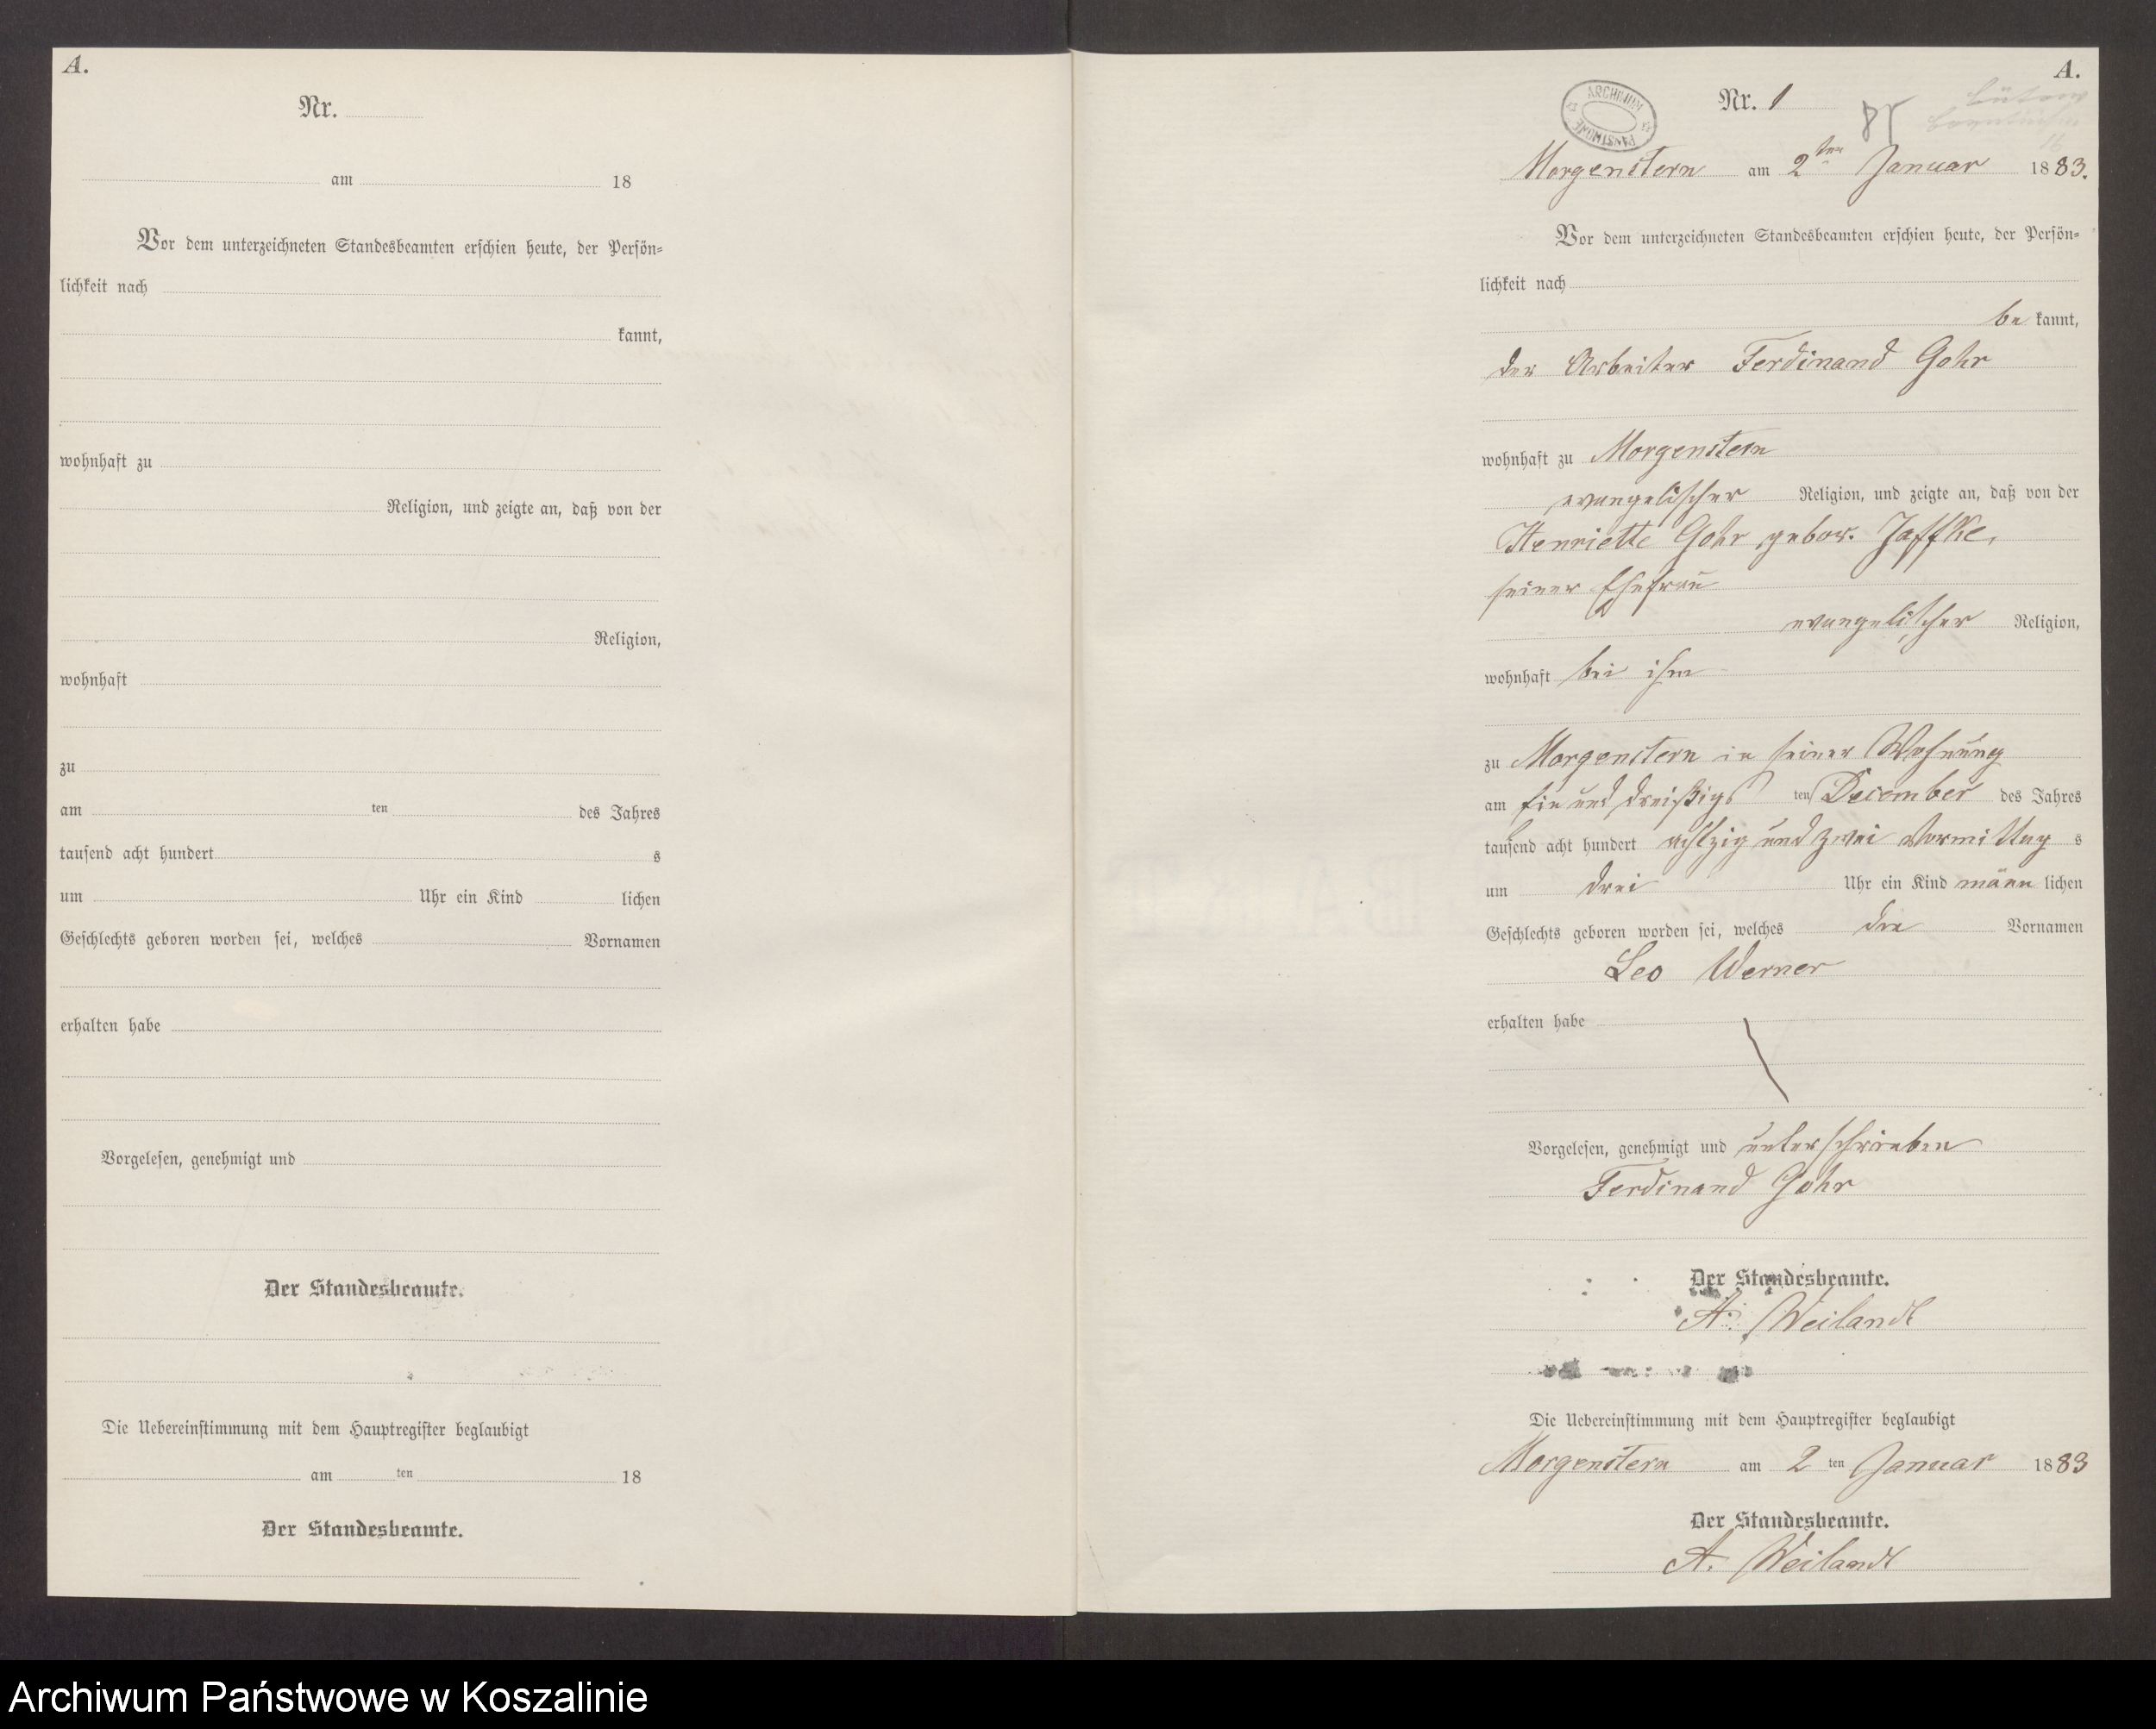 A.
Nr.
am 18
Vor dem unterzeichneten Standesbeamten erschien heute, der Persön=
lichkeit nach
kannt,
wohnhaft zu
Religion, und zeigte an, daß von der
Religion,
wohnhaft
zu
am ten des Jahres
tausend acht hundert s
um Uhr ein Kind lichen
Geschlechts geboren worden sei, welches Vornamen
erhalten habe
Vorgelesen, genehmigt und
Der Standesbeamte.
Die Uebereinstimmung mit dem Hauptregister beglaubigt
am ten 18
Der Standesbeamte.
A.
ARCHIWUM PAŃSTWOWE
Nr. 1
Morgenstern am 2ten Januar 1883.
Vor dem unterzeichneten Standesbeamten erschien heute, der Persön=
lichkeit nach
be kannt,
der Arbeiter Ferdinand Gohr
wohnhaft zu Morgenstern
evangelischer Religion, und zeigte an, daß von der
Henriette Gohr gebor. Jaffke,
seiner Ehefrau
evangelischer Religion,
wohnhaft bei ihm
zu Morgenstern in seiner Wohnung
am ein und dreißigs ten December des Jahres
tausend acht hundert achtzig und zwei Vormittag s
um drei Uhr ein Kind männ lichen
Geschlechts geboren worden sei, welches die Vornamen
Leo Werner
erhalten habe
Vorgelesen, genehmigt und unterschrieben
Ferdinand Gohr
Der Standesbeamte.
A. Weilandt
Die Uebereinstimmung mit dem Hauptregister beglaubigt
Morgenstern am 2 ten Januar 1883
Der Standesbeamte.
A. Weilandt
Archiwum Państwowe w Koszalinie